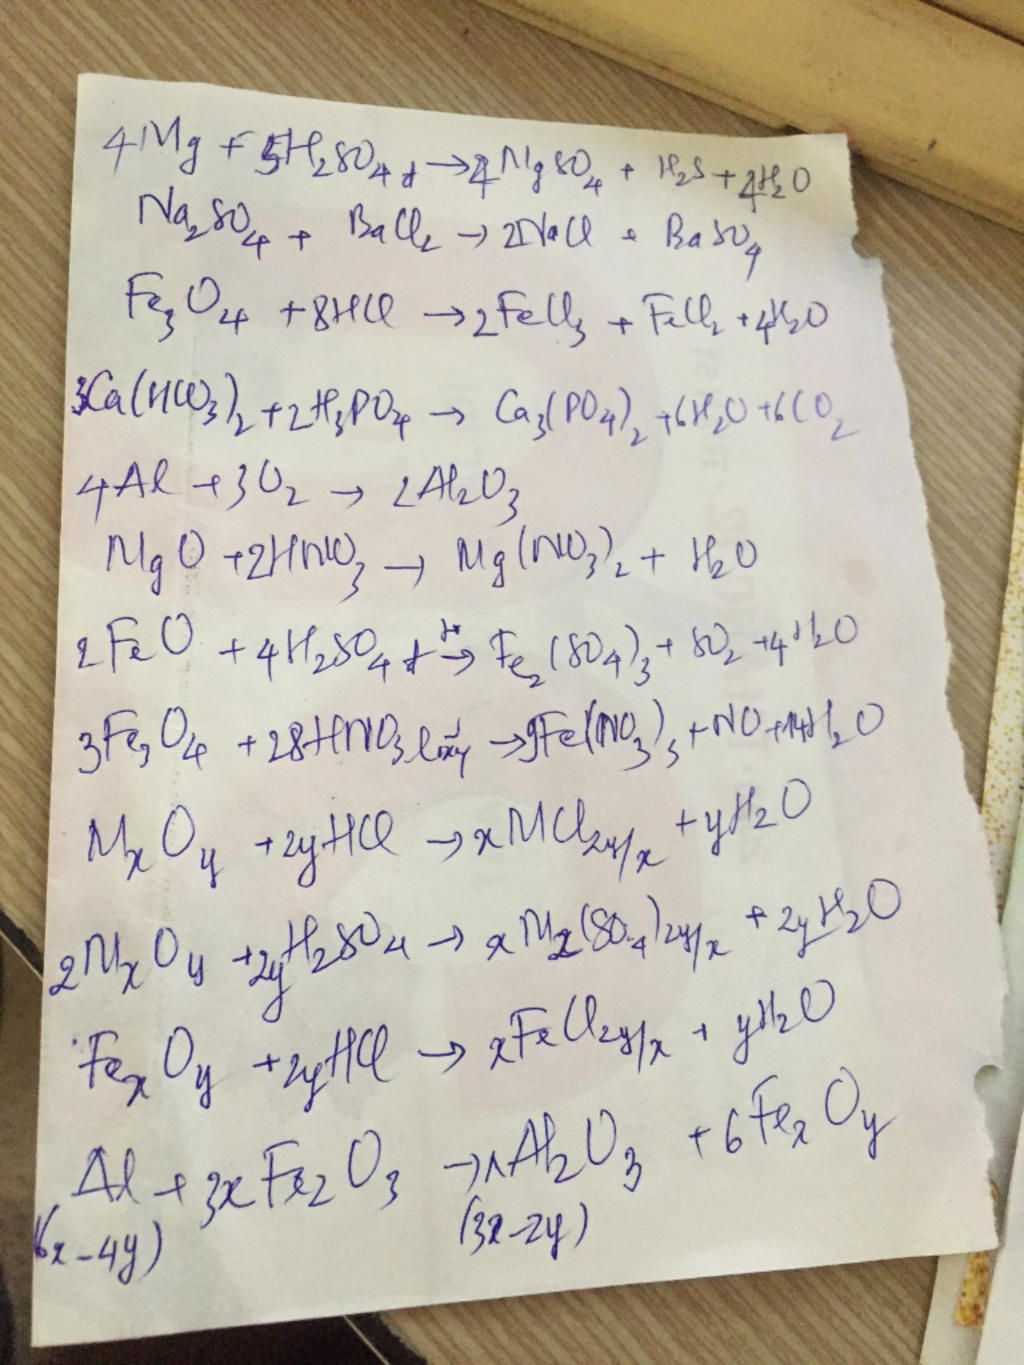 4Mg + 5H₂SO₄ đ → 4MgSO₄ + H₂S + 4H₂O
Na₂SO₄ + BaCl₂ → 2NaCl + BaSO₄
Fe₃O₄ + 8HCl → 2FeCl₃ + FeCl₂ + 4H₂O
3Ca(HCO₃)₂ + 2H₃PO₄ → Ca₃(PO₄)₂ + 6H₂O + 6CO₂
4Al + 3O₂ → 2Al₂O₃
MgO + 2HNO₃ → Mg(NO₃)₂ + H₂O
2FeO + 4H₂SO₄ đ → Fe₂(SO₄)₃ + SO₂ + 4H₂O
3Fe₃O₄ + 28HNO₃ loãng → 9Fe(NO₃)₃ + NO + 14H₂O
MₓOy + 2yHCl → xMCl2y/x + yH₂O
2MₓOy + 2yH₂SO₄ → xM₂(SO₄)2y/x + 2yH₂O
FeₓOy + 2yHCl → xFeCl2y/x + yH₂O
Al + 3xFe₂O₃ → Al₂O₃ + 6FeₓOy
(6x - 4y) (3x - 2y)